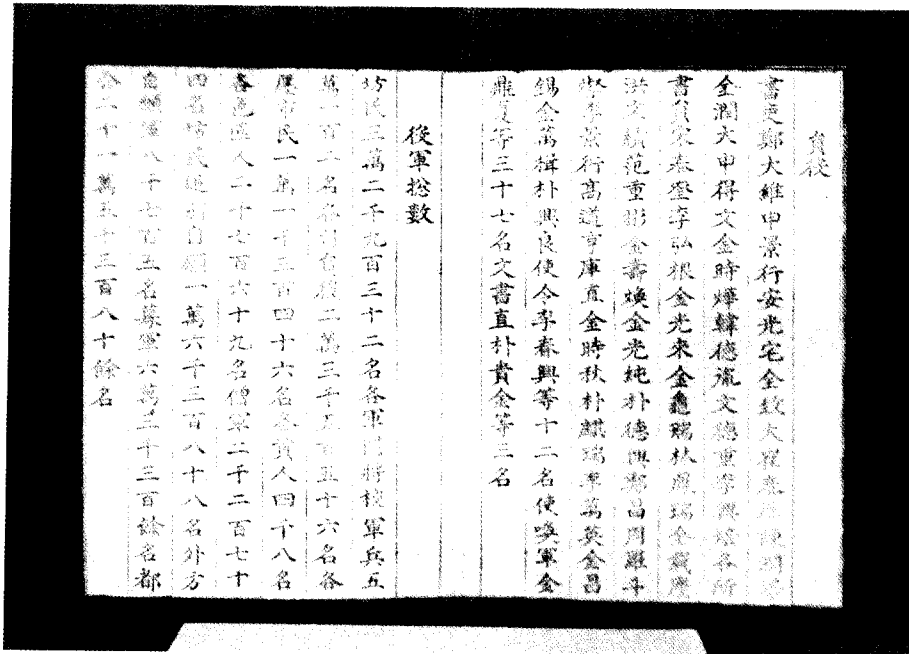 員役
書吏鄭大維申景行安光宅全致大崔
金潤大申得文金時燁韓德流文德重李興燧各所
書員宋泰登李弘根金光來金龜瑞秋鼎瑞李載慶
洪文績范重彬金壽煥金光純朴德興鄭昌周羅斗
李景行高道亨庫直金時秋朴麒瑞車萬英金昌
錫金萬楫朴興良使令李春興等十二名使喚軍金
鼎夏等三十七名文書直朴貴金等三名
役軍摠數
坊民三萬二千九百三十二名各軍門將校軍兵五
萬一百二名各司台役二萬三千五百五十六名各
廛市民一萬一千三百四十六名各貢人四千八名
各色匠人二千七百六十九名僧軍二千二百七十
四名坊民追到自願一萬六千三百八十八名外方
自願軍八千七百五名募軍六萬三千三百餘名都
合二十一萬五千三百八十餘名